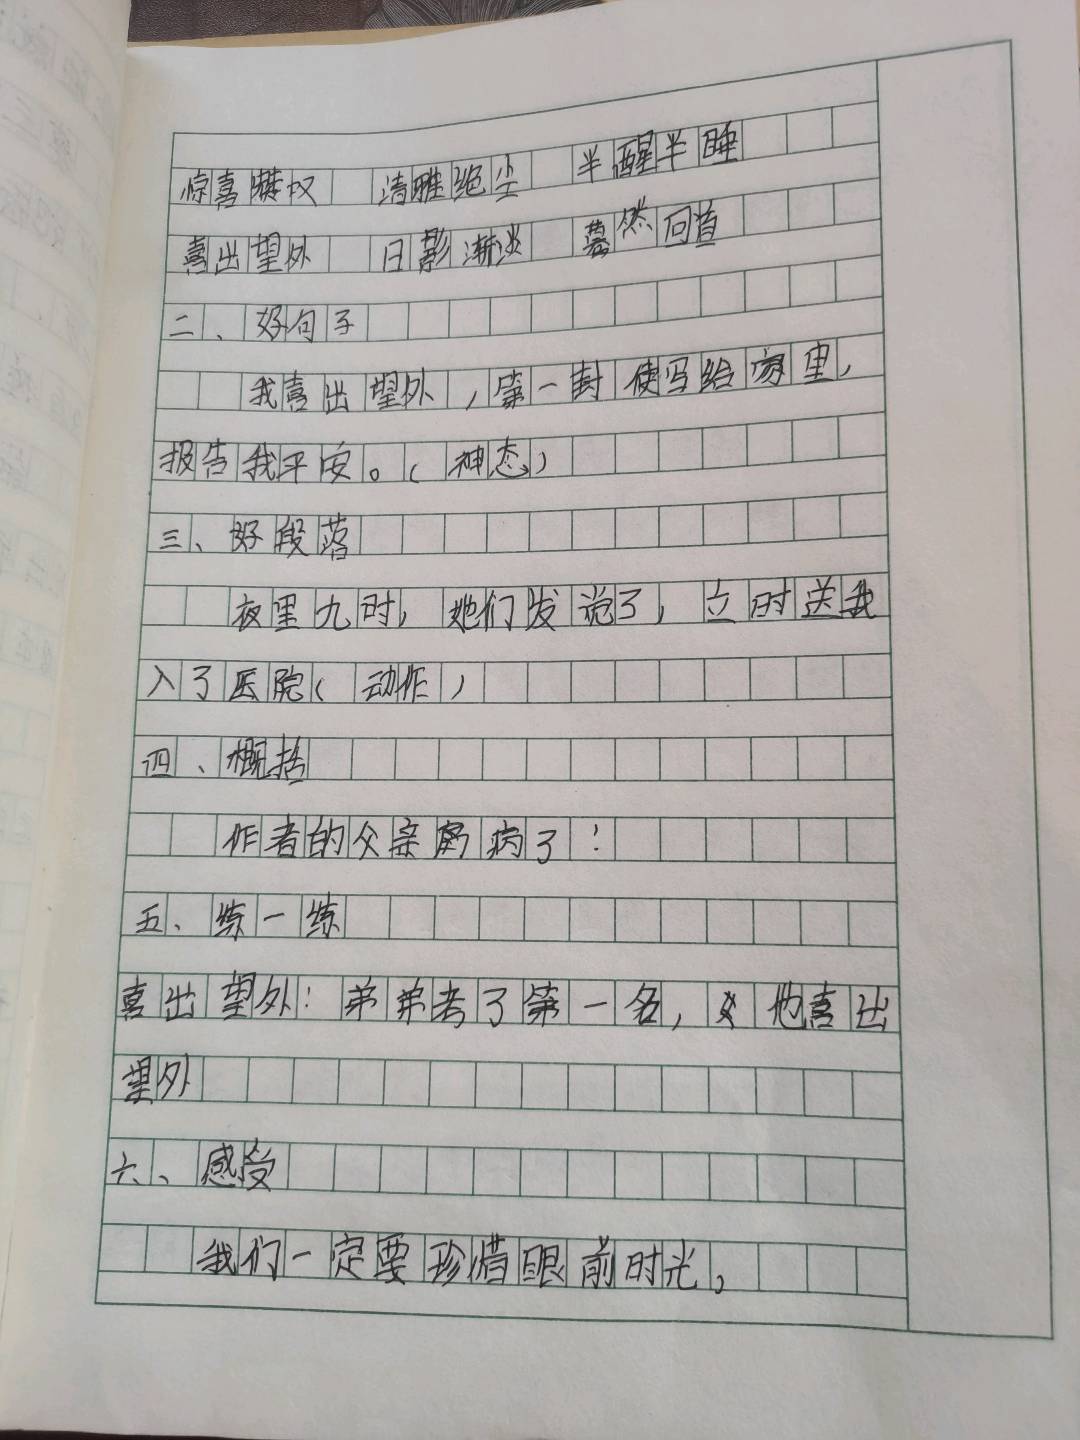 惊喜赞叹 清雅绝尘 半醒半睡
喜出望外 日影渐淡 蓦然回首
二、好句子
我喜出望外，第一封使写给家里，
报告我平安。（神态）
三、好段落
夜里九时，她们发说了，立时送我
入了医院（动作）
四、概括
作者的父亲病了！
五、练一练
喜出望外：弟弟考了第一名，他喜出
望外
六、感受
我们一定要珍惜眼前时光。